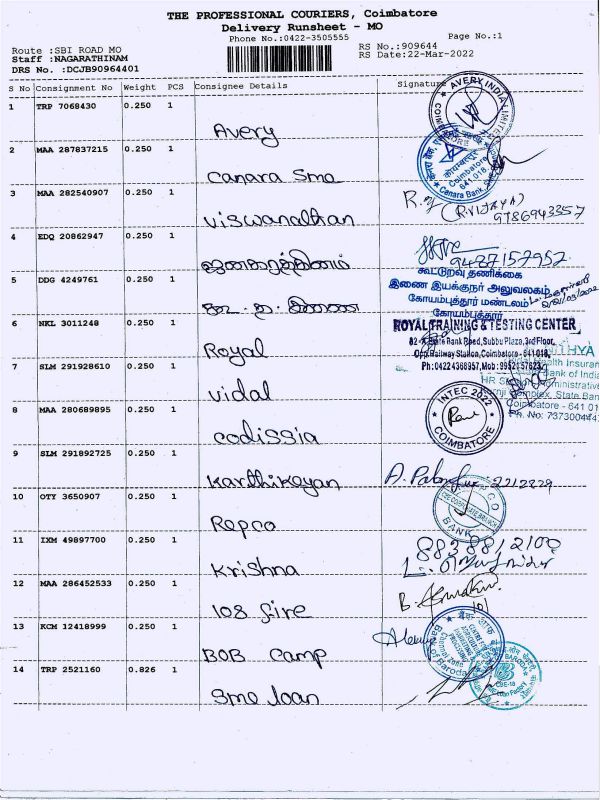 THE PROFESSIONAL COURIERS, Coimbatore
Delivery Runsheet - MO
Phone No.:0422-3505555
Page No.:1
Route :SBI ROAD MO
RS No.:909644
Staff :NAGARATHINAM
RS Date:22-Mar-2022
DRS No. :DCJB90964401
S No Consignment No Weight PCS Consignee Details Signature
1 TRP 7068430 0.250 1
Avery
AVERY INDIA LIMITED
2 MAA 287837215 0.250 1
Canara Sme
Coimbatore
641 018
Canara Bank
3 MAA 282540907 0.250 1
Viswanathan
(R.VIJAYA)
9786943357
4 EDQ 20862947 0.250 1
9487157952
5 DDG 4249761 0.250 1
கூட்டுறவு தணிக்கை
இணை இயக்குநர் அலுவலகம்
கோயம்புத்தூர் மண்டலம்
கோயம்புத்தூர்
6 NKL 3011248 0.250 1
Royal
ROYAL TRAINING & TESTING CENTER
82-A State Bank Road, Subbu Plaza, 3rd Floor,
Opp.Railway Station, Coimbatore - 641 018,
Ph: 0422 4366957, Mob: 9952157623
7 SLM 291928610 0.250 1
Vidal
Health Insuran
Bank of India
Administrative
Complex, State Ban
Coimbatore - 641 01
Ph. No: 7373004
8 MAA 280689895 0.250 1
Codissia
INTEC 2022
COIMBATORE
9 SLM 291892725 0.250 1
Karthikeyan
10 OTY 3650907 0.250 1
Repco
BANK
11 IXM 49897700 0.250 1
Krishna
8838812100
12 MAA 286452533 0.250 1
108 fire
13 KCM 12418999 0.250 1
BOB Camp
Bank of Baroda
14 TRP 2521160 0.826 1
Sme loan